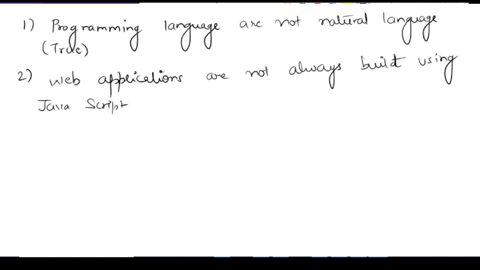 1) Programming language are not natural language
(True)
2) Web applications are not always built using
Java Script